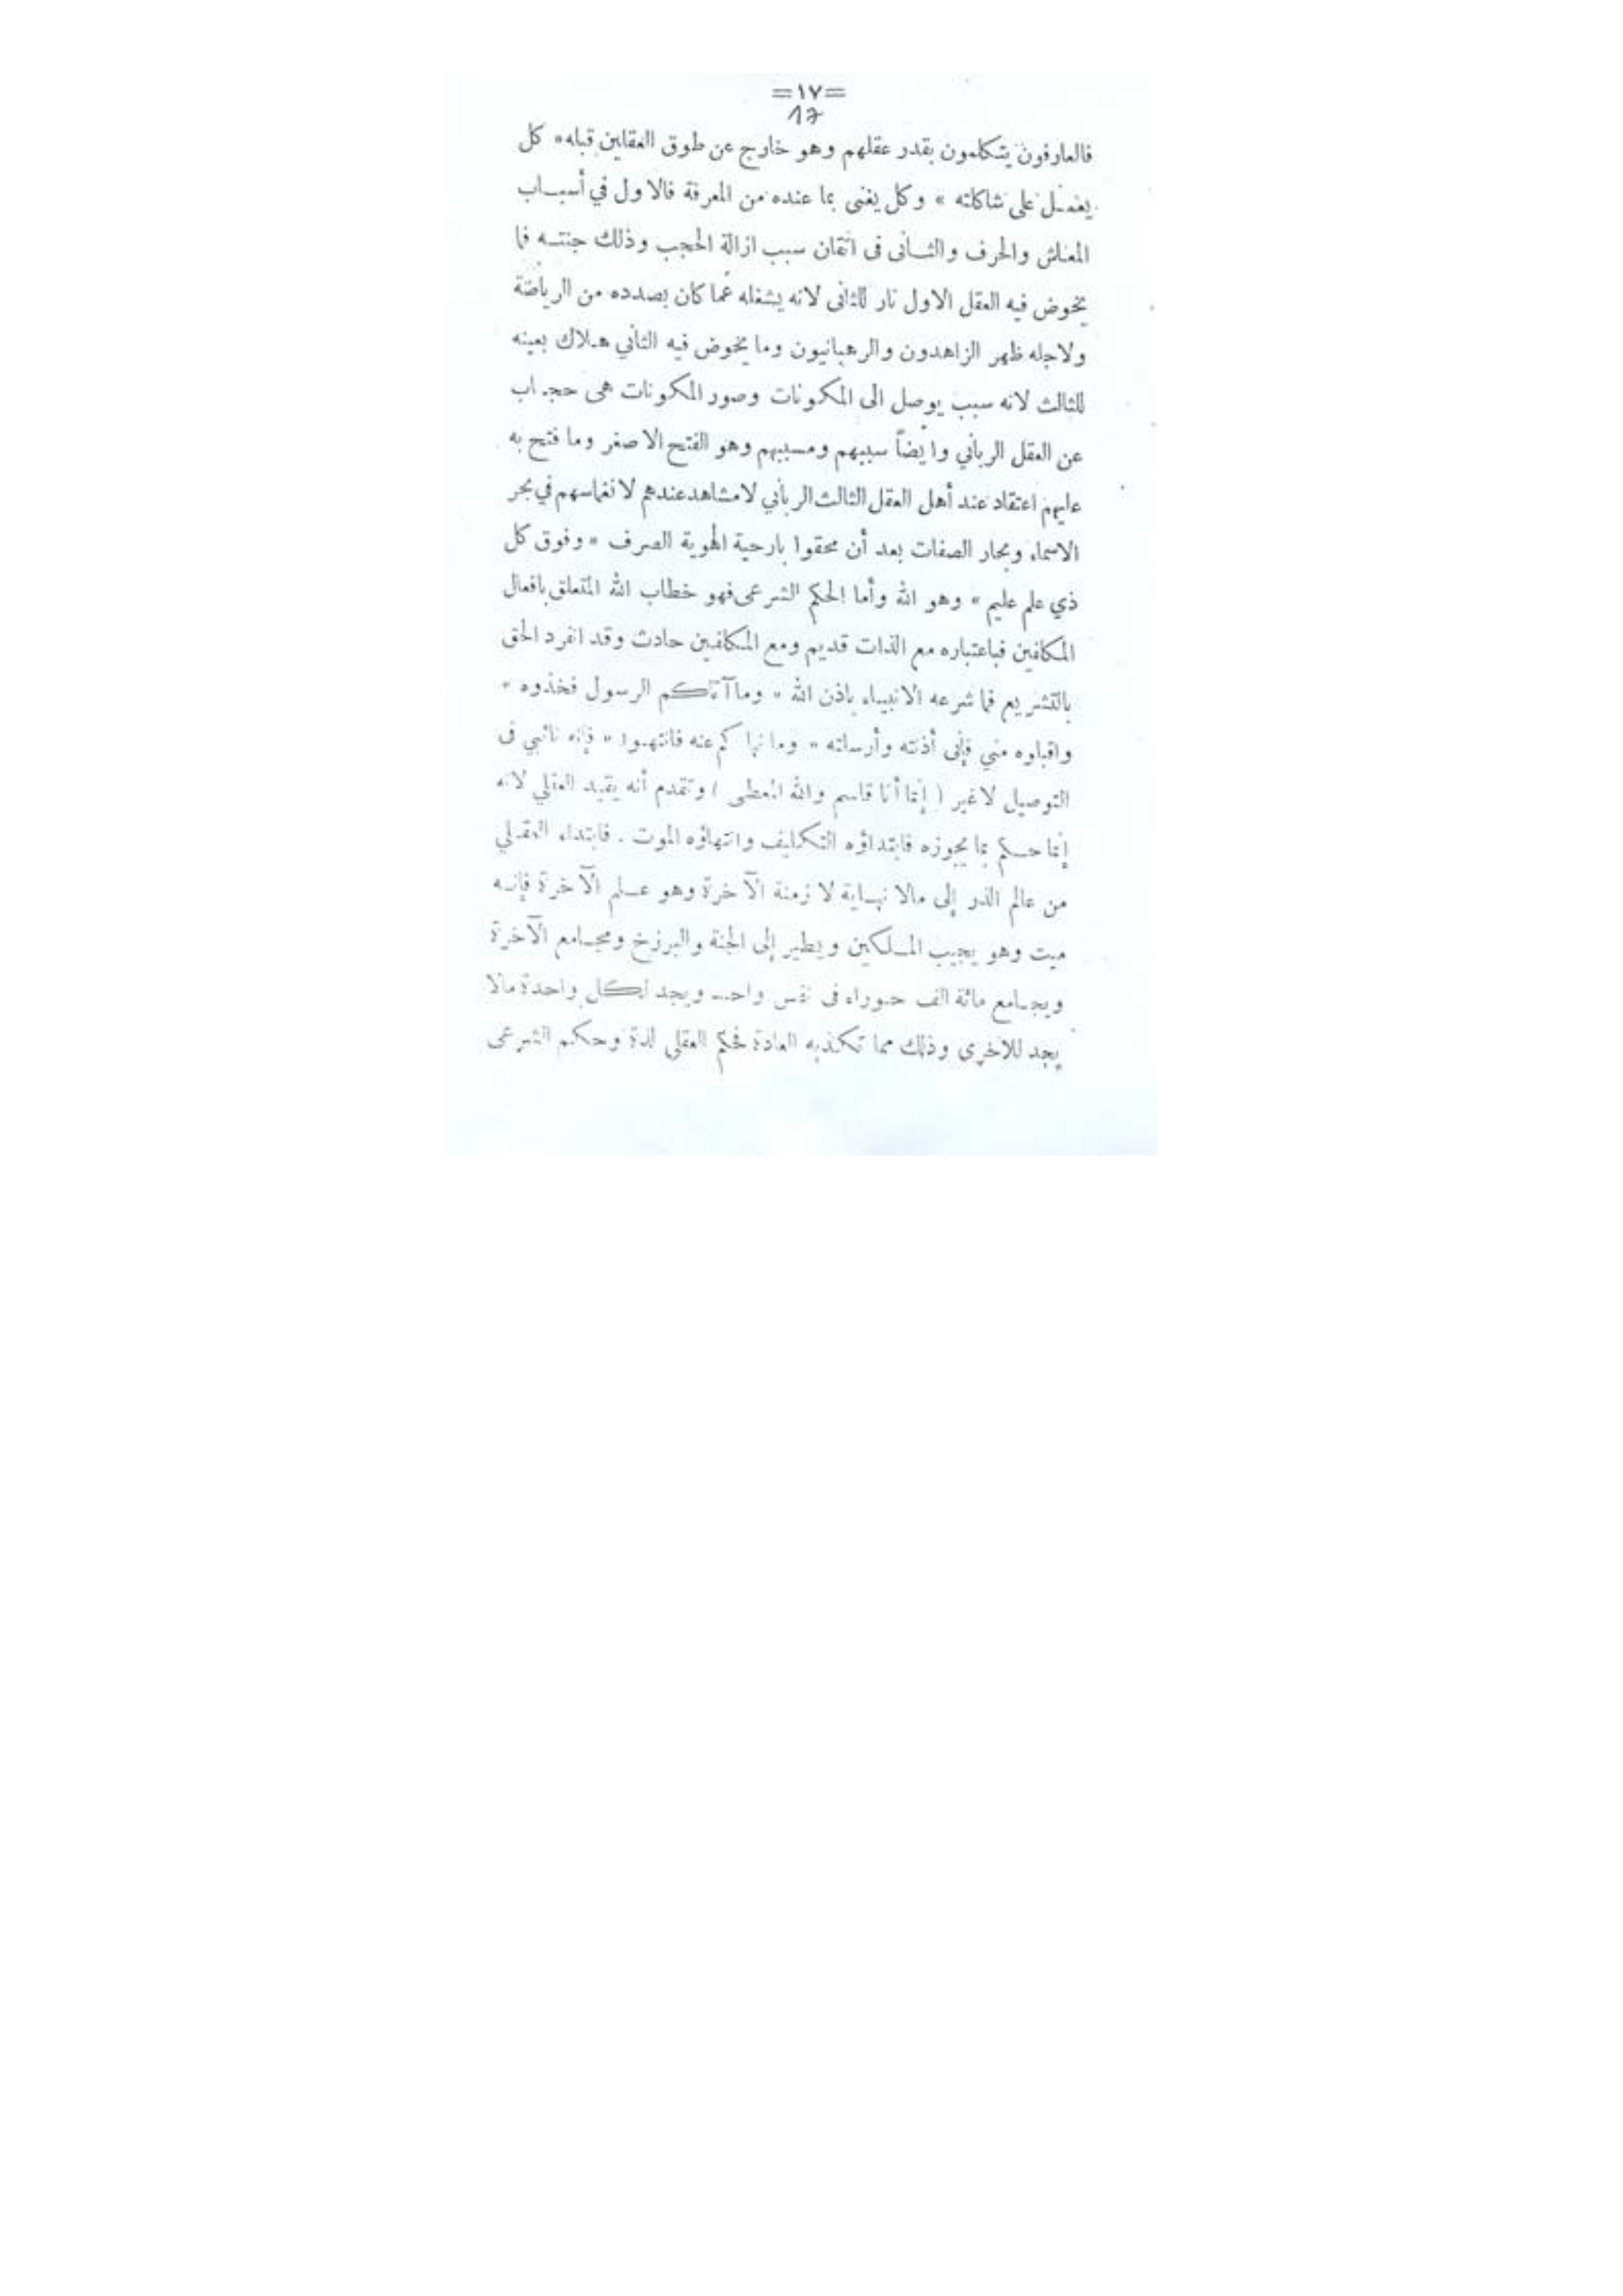 =١٧=
17
فالعارفون يتكلمون بقدر عقلهم وهو خارج عن طوق العقلين قبله « كل
يعمل على شاكلته » وكل يغنى بما عنده من المعرفة فالاول في أسباب
المعاش والحرف والثانى فى اتقان سبب ازالة الحجب وذلك جنته فما
يخوض فيه العقل الاول نار للثانى لانه يشغله عما كان بصدده من الرياضة
ولاجله ظهر الزاهدون والرهبانيون وما يخوض فيه الثاني هلاك بعينه
للثالث لانه سبب يوصل الى المكونات وصور المكونات هى حجاب
عن العقل الرباني وايضاً سببهم ومسببهم وهو الفتح الاصغر وما فتح به
عليهم اعتقاد عند أهل العقل الثالث الرباني لامشاهد عندهم لانغماسهم في بحر
الاسماء وبحار الصفات بعد أن محقوا بارحية الهوية الصرف « وفوق كل
ذي علم عليم » وهو الله وأما الحكم الشرعى فهو خطاب الله المتعلق بافعال
المكلفين فباعتباره مع الذات قديم ومع المكلفين حادث وقد انفرد الحق
بالتشريع فما شرعه الانبياء باذن الله « وما آتاكم الرسول فخذوه »
واقبلوه مني فإنى أذنته وأرسلته « وما نهاكم عنه فانتهوا » فإنه نائبي فى
التوصيل لاغير ( إنما أنا قاسم والله المعطى ) وتقدم أنه يقيد العقلي لانه
إنما حكم بما يجوزه فابتداؤه التكليف وانتهاؤه الموت . فابتداء العقلي
من عالم الذر إلى مالا نهاية لازمنة الآخرة وهو علم الآخرة فإنه
ميت وهو يجيب الملكين ويطير إلى الجنة والبرزخ ومجامع الآخرة
ويجامع مائة الف حوراء فى نفس واحد ويجد لكل واحدة مالا
يجد للاخرى وذلك مما تكذبه العادة فحكم العقلي لذة وحكم الشرعى